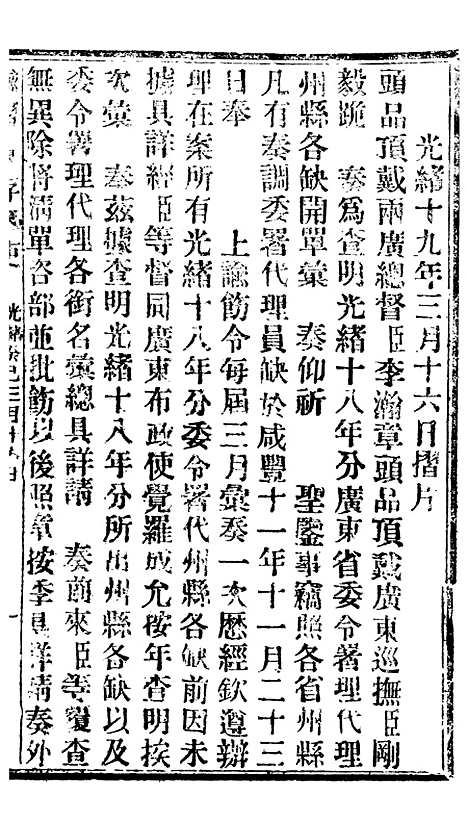 光緒十九年三月十六日摺片
頭品頂戴兩廣總督臣李瀚章頭品頂戴廣東巡撫臣剛
毅跪　奏爲查明光緒十八年分廣東省委令署理代理
州縣各缺開單彙　奏仰祈　聖鑒事竊照各省州縣
凡有奏調委署代理員缺於咸豐十一年十一月二十三
日奉　上諭飭令每屆三月彙奏一次歷經欽遵辦
理在案所有光緒十八年分委令署代州縣各缺前因未
據具詳經臣等督同廣東布政使覺羅成允按年查明挨
次彙　奏茲據查明光緒十八年分所出州縣各缺以及
委令署理代理各銜名彙總具詳請　奏前來臣等覆查
無異除將清單咨部並批飭以後照章按季具詳請奏外